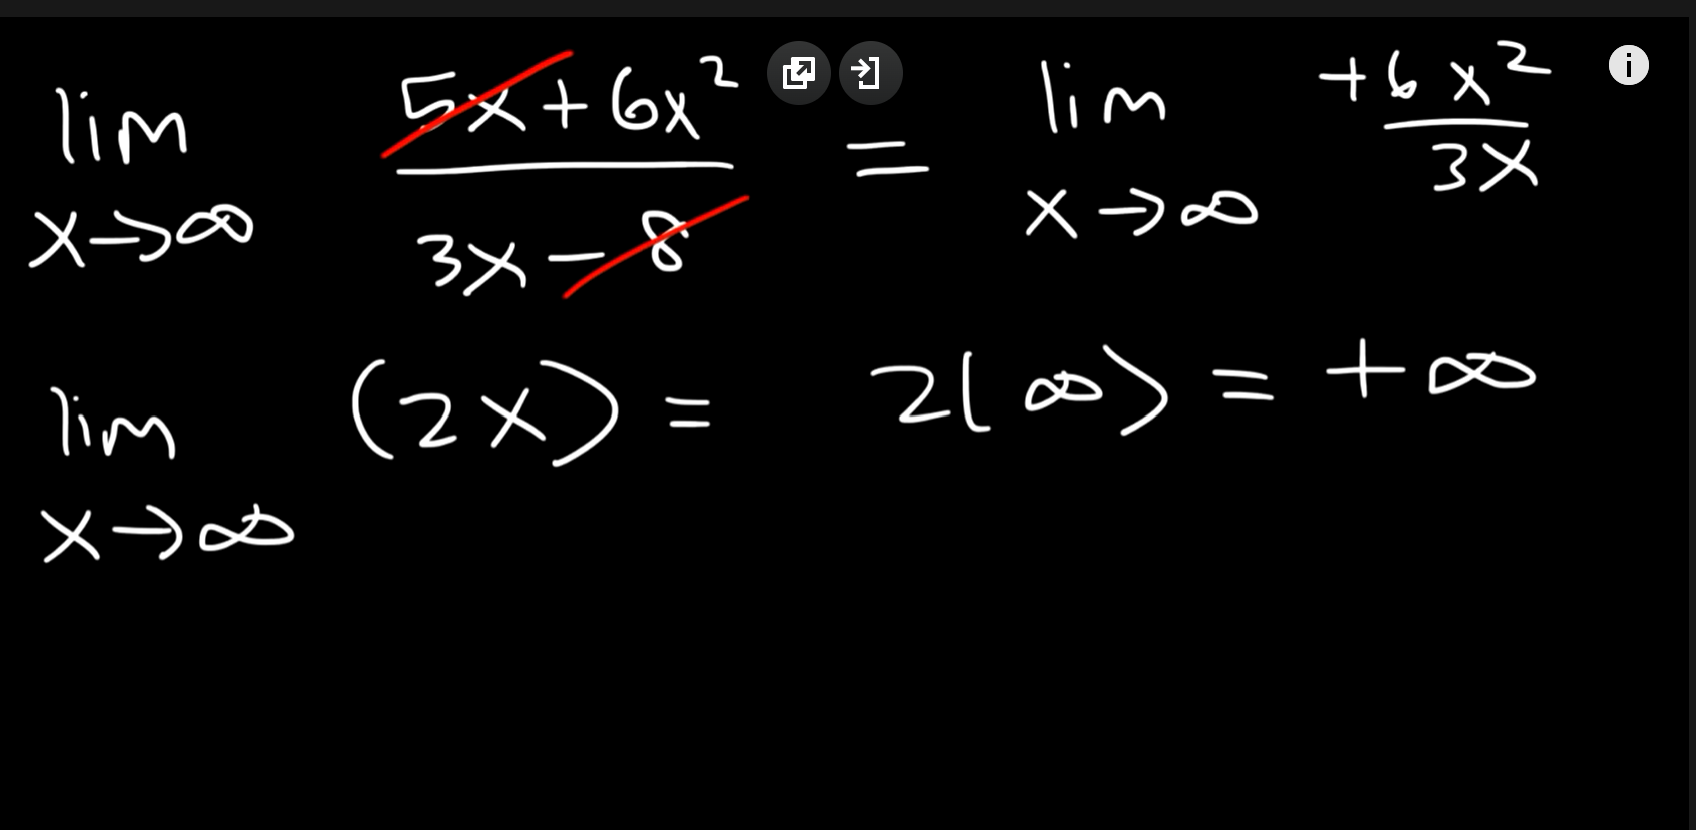 lim x→∞ (5x + 6x²)/(3x − 8) = lim x→∞ +6x²/3x
lim x→∞ (2x) = 2(∞) = +∞